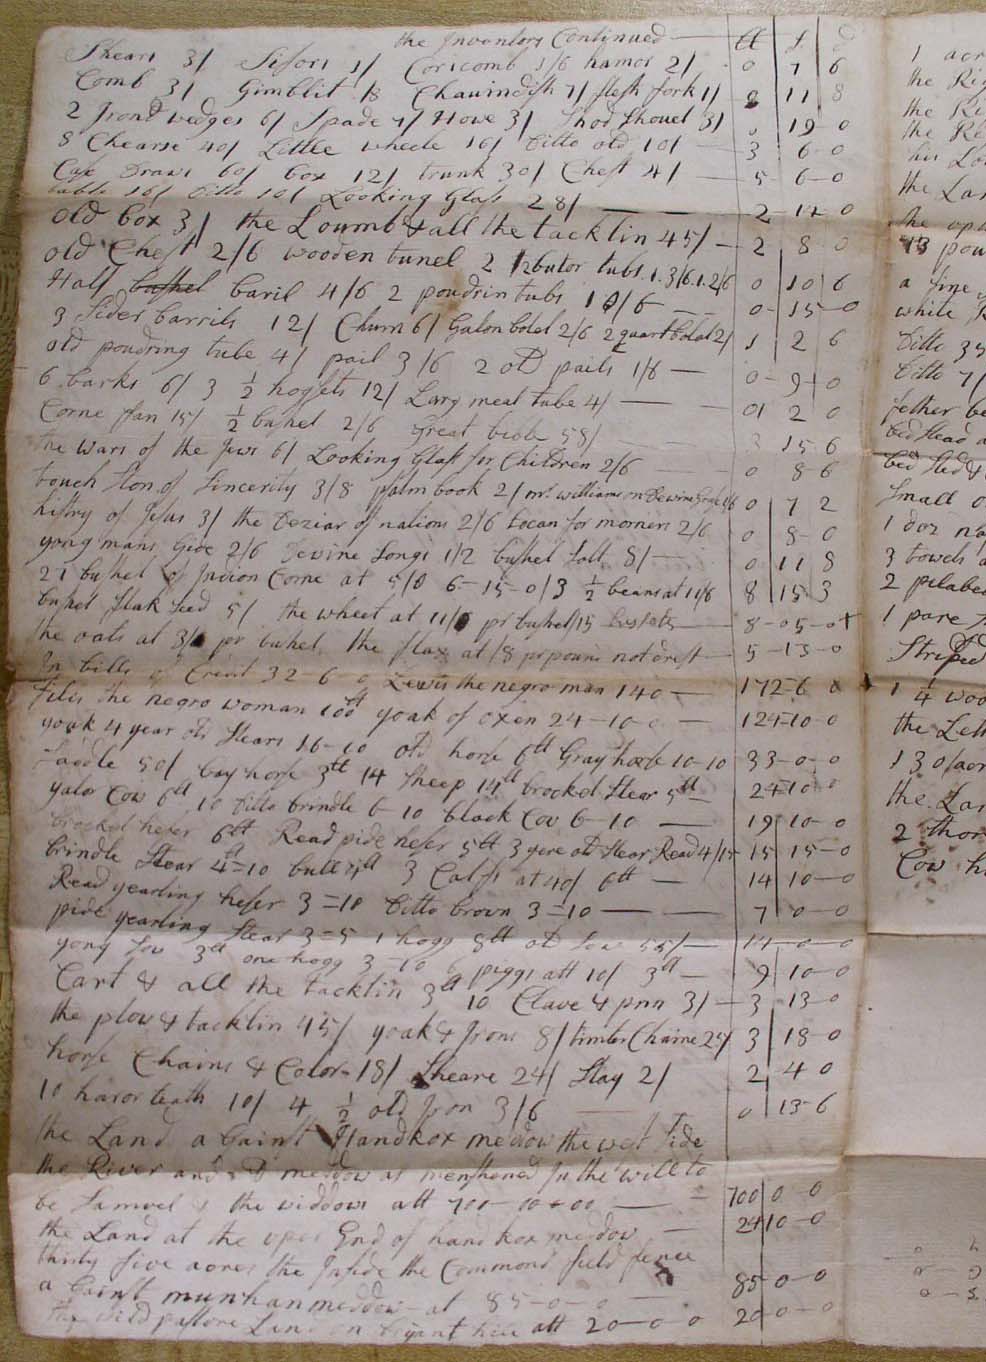 the Inventory Continued — tt s d
Shears 3/ Sisors 1/ Coricomb 1/6 hamor 2/ 0 7 6
Comb 3/ Gimblit /8 Chaffindish 7/ flesh fork 1/ 11 8
2 Irond wedges 6/ Spade 7/ Howe 3/ Shod Shovel 3/ 0 19 0
8 Chearse 40/ Little wheele 16/ Ditto old 10/ — 3 6 0
Case Draws 60/ box 12/ trunk 30/ Chest 4/ — 5 6 0
table 16/ Ditto 10/ Looking Glass 28/ — 2 14 0
old box 3/ the Loumb & all the tacklin 45/ — 2 8 0
old Chest 2/6 wooden tunel 2 butor tubs 1.3/6.1.2/6 0 10 6
Half bushel baril 4/6 2 poudrin tubs 10/6 — 0 15 0
3 Sider barrils 12/ Churn 6/ Galon botel 2/6 2 quart botel 2/ 1 2 6
old poudring tube 4/ pail 3/6 2 old pails 1/6 — 0 9 0
6 barks 6/ 3 1/2 hogsets 12/ Larg meal tube 4/ — 01 2 0
Corne fan 15/ 1/2 bushel 2/6 Great bible 58/ — 3 15 6
the wars of the Jews 6/ Looking Glass for Children 2/6 — 0 8 6
touch ston of Sincerity 3/8 psalm book 2/ mr williams on 0 7 2
histry of Jesus 3/ the Deziar of nations 2/6 for morners 2/6 0 8 0
yong mans Gide 2/6 Devine Songs 1/2 bushel Salt 8/ — 0 11 8
21 bushel of Indion Corne at 5/0 6-15-0/3 1/2 beans at 11/6 8 15 3
bushel flak seed 5/ the wheat at 11/0 pr bushel/15 8-05-0+
the oats at 3/ pr bushel the flax at /8 pr pound not drest — 5-13-0
In bills of Credit 32-6-0 Lewis the negro man 140 — 172-6 0
filis the negro woman 100tt yoak of oxen 24-10-0 — 124-10-0
yoak 4 year old Stears 16-10 old horse 6tt Gray horse 10-10 33-0-0
Saddle 50/ bay horse 3tt 14 Sheep 14tt brocked Stear 5tt — 24-10-0
yalor Cow 6tt 10 Ditto brindle 6-10 black Cow 6-10 — 19 10-0
brocked hefer 6tt Read pide hefer 5tt 3 yere old Stear Read 4/15 15 15-0
brindle Stear 4=10 bull 4tt 3 Calfs at 40/ 6tt — 14 10-0
Read yearling hefer 3=10 Ditto brown 3=10 — — 7 0-0
pide yearling Stear 3=5 1 hogg 8tt old Sow 55/ — 14-0-0
yong Sow 3tt one hogg 3-10 6 piggs att 10/ 3tt — 9 10-0
Cart & all the tacklin 3tt 10 Clave & pinn 3/ — 3 13-0
the plow & tacklin 45/ yoak & Irons 8/ timber Chaine 25/ 3 18-0
horse Chains & Color 18/ Sheare 24/ Slay 2/ 2 4 0
10 haror teath 10/ 4 1/2 old Iron 3/6 — 0 13-6
the Land a Gainst Handkox meddow the west Side
the River and meddow as menshoned In the will to
be Samuel & the widdows att 700-00-00 — 700 0-0
the Land at the uper End of handkox meddow — 24 10-0
thirty five acres the Inside the Commond field fence
a Gainst munhan meddow at 85-0-0 — 85 0-0
pastore Land on bryant hill att 20-0-0 20 0-0
1 acr
the Rig
the Ri
the Re
his Lo
the Lan
the upd
13 pou
a fine
white
Ditto 35
Ditto 7/
fether be
bedstead a
bed sted &
Small
1 doz na
3 towels a
2 pilabee
1 pare
Striped
1 1/4 woo
the Left
130/acr
the Lan
2 thor
Cow hi